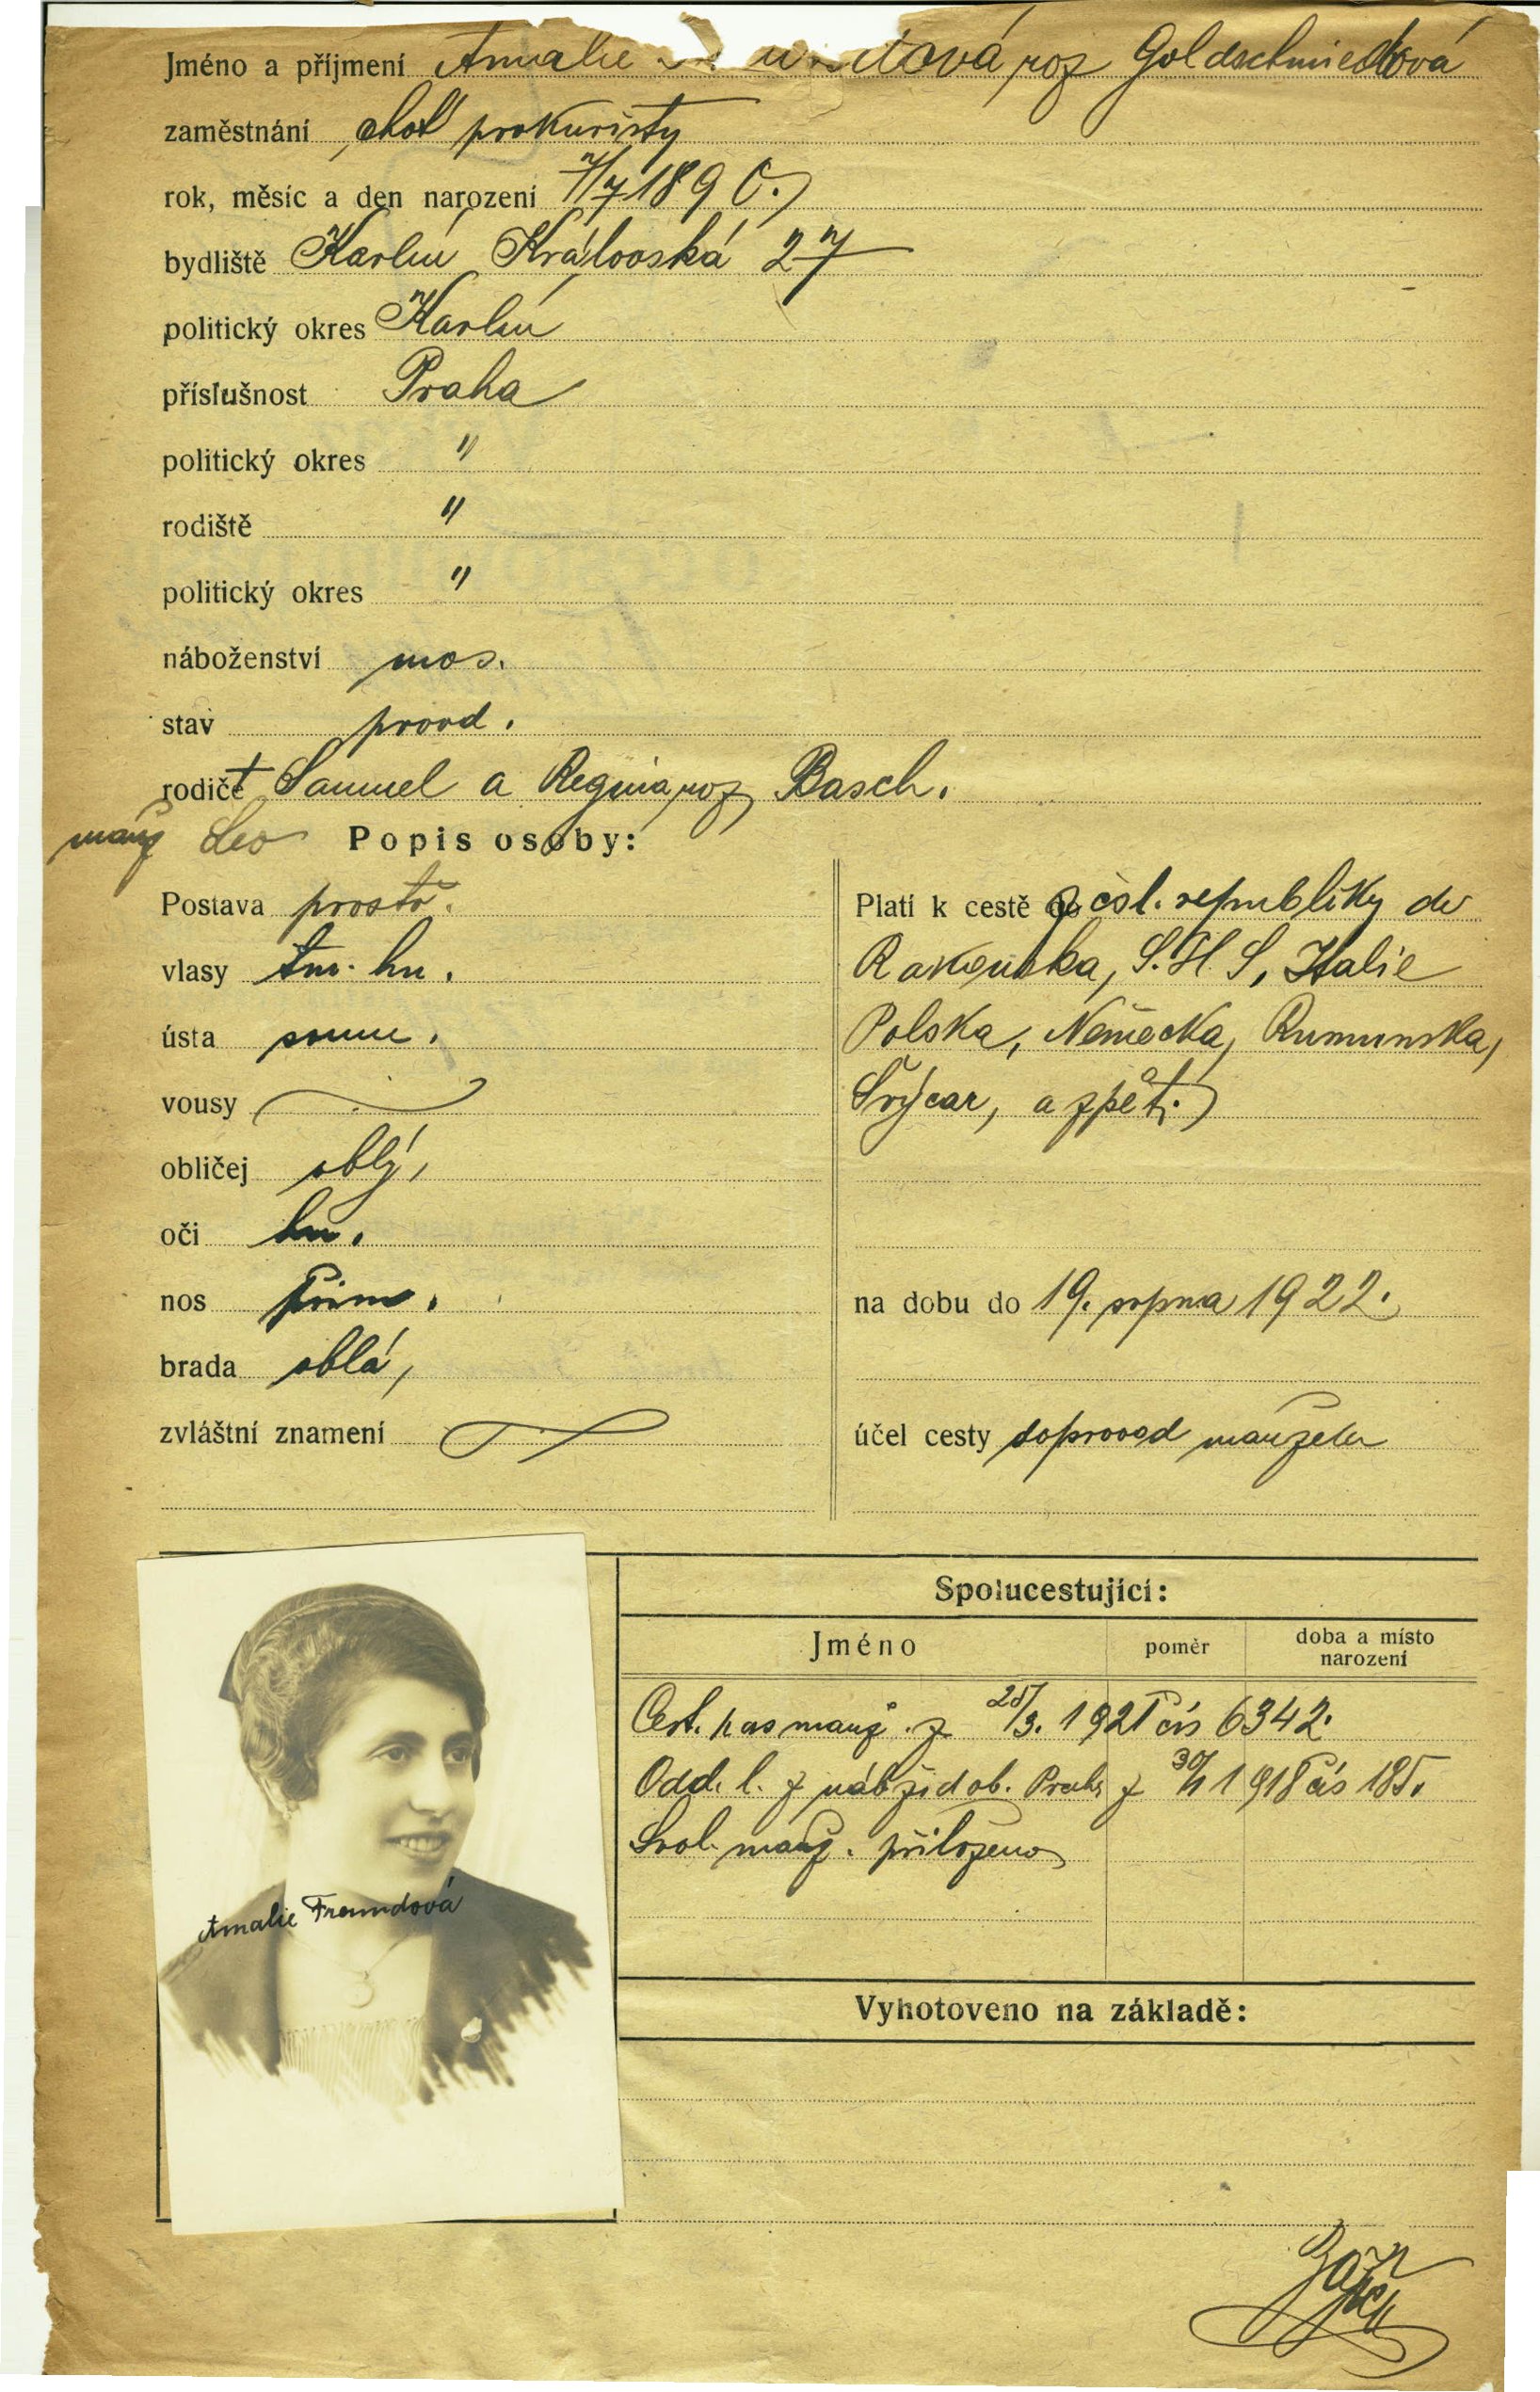 Jméno a příjmení Amalie roz Goldschmiedová
zaměstnání choť prokuristy
rok, měsíc a den narození 7/7 1890.
bydliště Karlín Královská 27
politický okres Karlín
příslušnost Praha
politický okres "
rodiště "
politický okres "
náboženství mos.
stav provd.
rodiče Samuel a Regina roz Basch.
manž Leo
Popis osoby:
Postava prostř.
vlasy tm. hn.
ústa soum.
vousy
obličej oblý,
oči hn.
nos přim.
brada oblá,
zvláštní znamení
Platí k cestě z čsl. republiky do
Rakouska, S. H. S, Italie
Polska, Německa, Rumunska,
Švýcar, a zpět.
na dobu do 19. srpna 1922.
účel cesty doprovod manžela
Amalie Freundová
Spolucestující:
Jméno poměr doba a místo narození
Cest. pas manž. z 25/3. 1921 čís 6342.
Odd. l. z náb žid ob. Praha z 1918 čís 185.
Svol. manž. přiloženo
Vyhotoveno na základě: